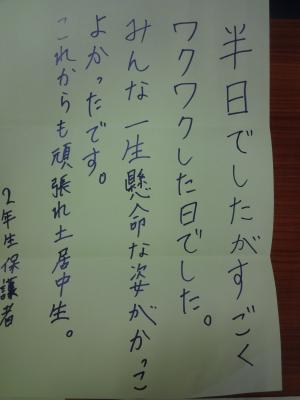 半日でしたがすごく
ワクワクした日でした。
みんな一生懸命な姿がかっこ
よかったです。
これからも頑張れ土居中生。
2年生保護者